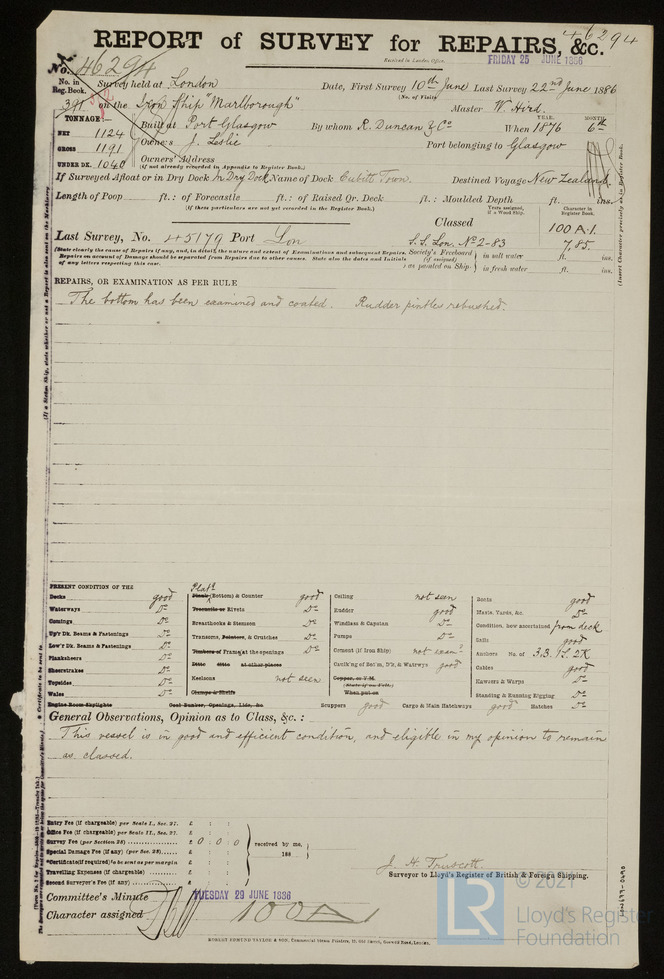 46294
REPORT of SURVEY for REPAIRS, &c.
Received in London Office,
FRIDAY 25 JUNE 1886
No. 46294
No. in Reg. Book. Survey held at London Date, First Survey 10th June Last Survey 22nd June 1886
(No. of Visits)
on the Iron Ship "Marlborough" Master W. Hird.
TONNAGE:— Built at Port Glasgow By whom R. Duncan & Co When 1876 6th
YEAR. MONTH.
NET 1124
GROSS 1191 Owners J. Leslie Port belonging to Glasgow
UNDER DK. 1040 Owners' Address
(if not already recorded in Appendix to Register Book.)
If Surveyed Afloat or in Dry Dock In Dry Dock Name of Dock Cubitt Town. Destined Voyage New Zealand.
Length of Poop ft.: of Forecastle ft.: of Raised Qr. Deck ft.: Moulded Depth ft. ins.
(If these particulars are not yet recorded in the Register Book.)
Years assigned, if a Wood Ship.
Character in Register Book.
Classed 100 A.1.
Last Survey, No. 45179 Port Lon S.S. Lon. No 2-83 7,85.
(State clearly the cause of Repairs if any, and in detail, the nature and extent of Examinations and subsequent Repairs.
Repairs on account of Damage should be separated from Repairs due to other causes. State also the dates and initials
of any letters respecting this case.
Society's Freeboard (if assigned) as painted on Ship in salt water ft. ins.
in fresh water ft. ins.
(Insert Character precisely as in Register Book.
REPAIRS, OR EXAMINATION AS PER RULE
The bottom has been examined and coated. Rudder pintles rebushed.
PRESENT CONDITION OF THE
Decks good
Waterways Do
Comings Do
Up'r Dk. Beams & Fastenings Do
Low'r Dk. Beams & Fastenings Do
Planksheers Do
Sheerstrakes Do
Topsides Do
Wales Do
Engine Room Skylights
Coal Bunker, Openings, Lids, &c.
Plats
Plank (Bottom) & Counter good
Treenails or Rivets Do
Breasthooks & Stemson Do
Transoms, Pointers, & Crutches Do
Timbers of Frames at the openings Do
Ditto ditto at other places
Keelsons not seen
Clamps & Shelfs
Ceiling not seen
Rudder good
Windlass & Capstan Do
Pumps Do
Cement (if Iron Ship) not seen
Caulk'ng Bot'm, D'k, & Waterways good
Copper, or Y.M.
(State if on Felt)
When put on
Scuppers good Cargo & Main Hatchways good Hatches Do
Boats good
Masts, Yards, &c. Do
Condition, how ascertained from deck
Sails good
Anchors No. of 3.B. 1S. 2K
Cables good
Hawsers & Warps Do
Standing & Running Rigging Do
General Observations, Opinion as to Class, &c. :
This vessel is in good and efficient condition, and eligible in my opinion to remain
as classed.
Entry Fee (if chargeable) per Scale I., Sec. 27. £ : :
Office Fee (if chargeable) per Scale II., Sec. 27. £ : :
Survey Fee (per Section 28) £ 0 : 0 : 0
Special Damage Fee (if any) (per Sec. 28) £ : :
Certificate (if required) to be sent as per margin
Travelling Expenses (if chargeable) £ : :
Second Surveyor's Fee (if any) £ : :
received by me,
188
J. H. Truscott.
Surveyor to Lloyd's Register of British & Foreign Shipping.
Committee's Minute TUESDAY 29 JUNE 1886
Character assigned 100 A 1
ROBERT EDMUND TAYLOR & SON, Commercial Steam Printers, 19, Old Street, Goswell Road, London.
© 2021
LR
Lloyd's Register
Foundation